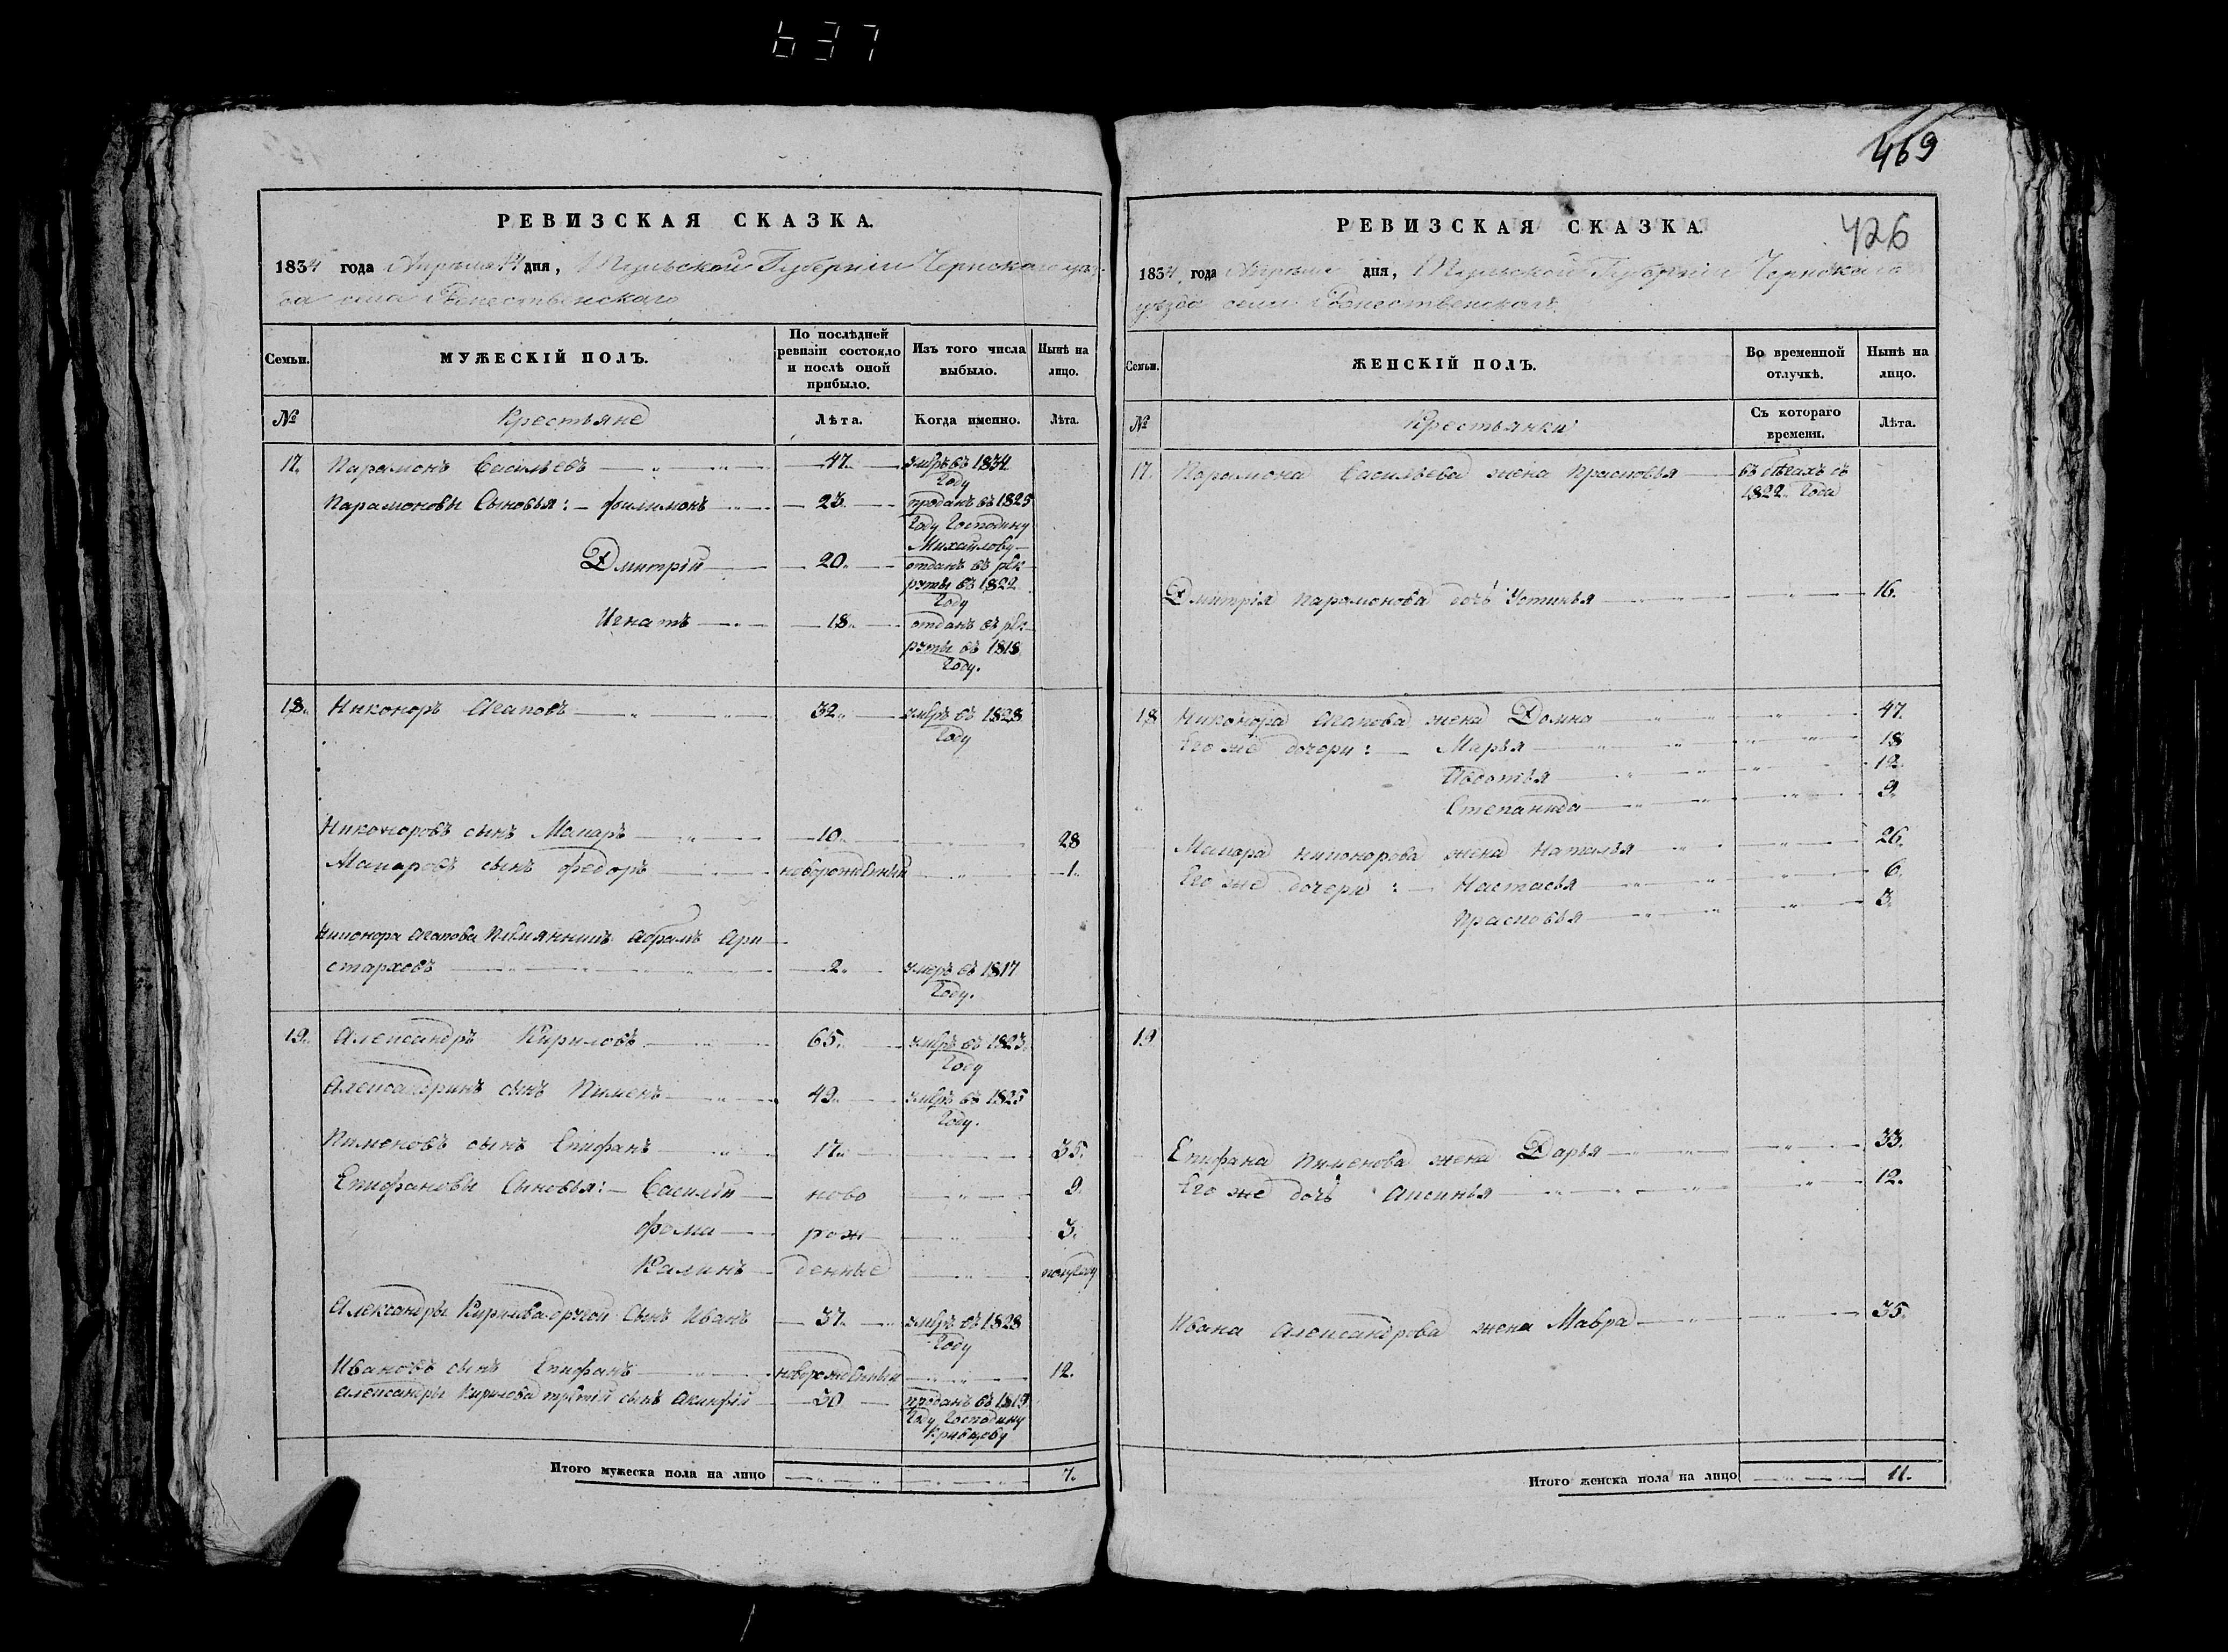 637
РЕВИЗСКАЯ СКАЗКА.
1834 года Апреля 14 дня, Тульской Губернiи Чернскаго уез-
да села Рожественскаго
Семьи.
МУЖЕСКІЙ ПОЛЪ.
По послѣдней ревизіи состояло и послѣ оной прибыло.
Изъ того числа выбыло.
Нынѣ на лицо.
№
Крестьяне
Лѣта.
Когда именно.
Лѣта.
17. Парамонъ Васильевъ 47. умѣръ въ 1834
Году
Парамоновы Сыновья: Филимонъ 23. проданъ въ 1825
Году Господину
Михайлову
Дмитрій 20. отданъ въ рѣк
руты въ 1822
Году
Игнатъ 18. отданъ въ рѣк
руты въ 1818
Году.
18. Никоноръ Агаповъ 32. умѣръ въ 1828
Году
Никоноровъ сынъ Макаръ 10. 28
Макаровъ сынъ Федоръ новорожденный 1.
Никонора Агапова Племянникъ Абрамъ Ари
старховъ 2. умеръ въ 1817
Году.
19. Александръ Кириловъ 65. умѣръ въ 1823.
Году
Александринъ сынъ Пименъ 49. умѣръ въ 1825
Году.
Пименовъ сынъ Епифанъ 17. 35.
Епифановы Сыновья: Василій ново 9.
Фома рож 3.
Калинъ денные полугоду
Александры Кирилова другой Сынъ Иванъ 37. умѣръ въ 1828
Году
Ивановъ сынъ Епифанъ новорожденный 12.
Александры Кирилова третій сынъ Акинфій 30 проданъ въ 1819
Году Господину
Кривцову
Итого мужеска пола на лицо 7.
469
426
РЕВИЗСКАЯ СКАЗКА.
1834. года Апреля дня, Тульской Губернiи Чернскаго
уезда села Рожественскаго.
Семьи.
ЖЕНСКІЙ ПОЛЪ.
Во временной отлучкѣ.
Нынѣ на лицо.
№
Крестьянки
Съ котораго времени.
Лѣта.
17. Парамона Васильева жена Прасковья въ бѣгахъ съ
1822 Года
Дмитрія Парамонова дочь Устинья 16.
18 Никонора Агапова жена Домна 47.
Его же дочери: Марья 18
Авдотья 12
Степанида 9.
Макара Никонорова жена Наталья 26.
Его же дочери: Настасья 6.
Прасковья 3.
19
Епифана Пименова жена Дарья 33.
Его же дочь Аксинья 12.
Ивана Александрова жена Мавра 35.
Итого женска пола на лицо 11.